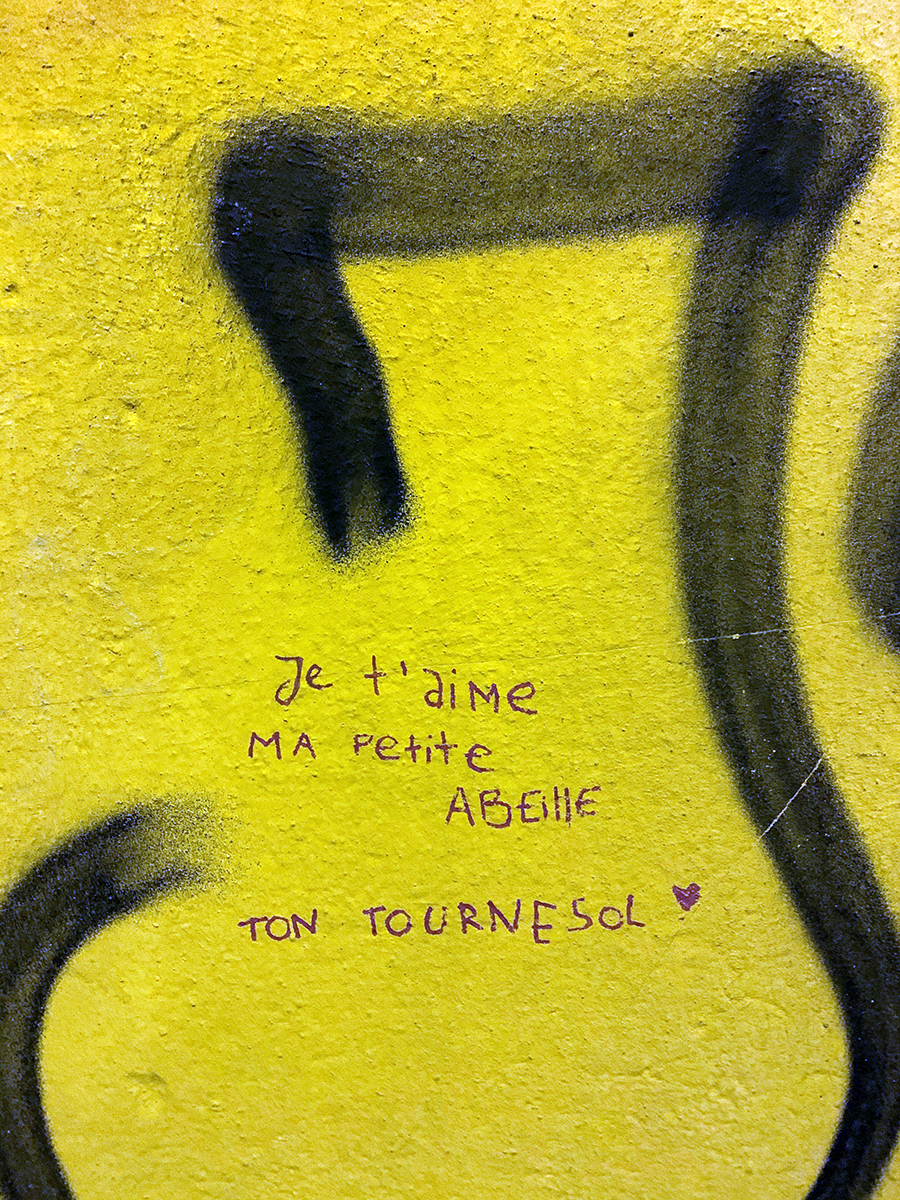 Je t'aime
MA Petite
ABEillE
TON TOURNESOL ♥